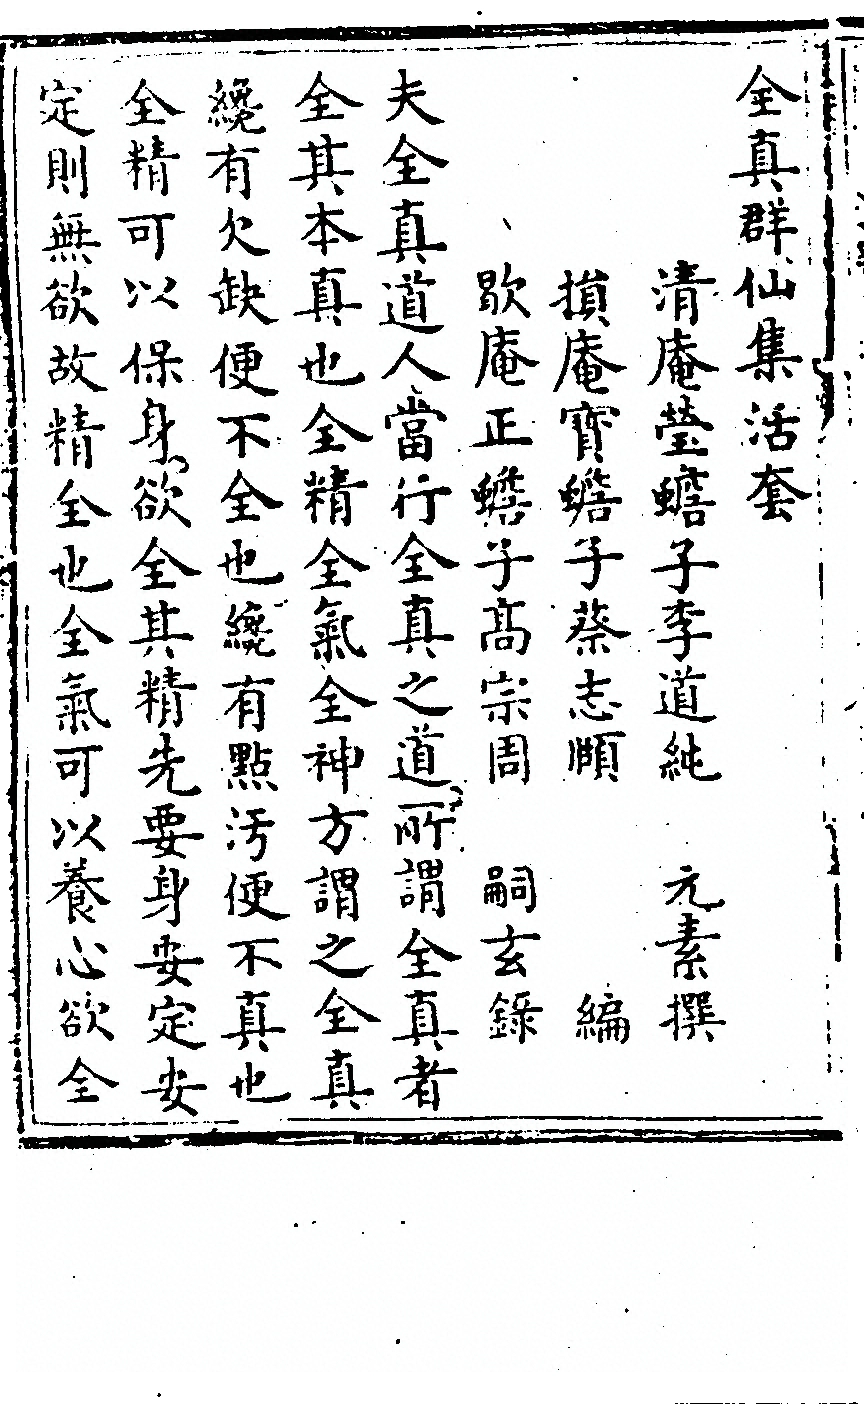 全真群仙集活套
清庵瑩蟾子李道純 元素撰
損庵寶蟾子蔡志頥 編
歇庵正蟾子髙宗周 嗣玄錄
夫全真道人當行全真之道所謂全真者
全其本真也全精全氣全神方謂之全真
纔有欠缺便不全也纔有點汚便不真也
全精可以保身欲全其精先要身安定安
定則無欲故精全也全氣可以養心欲全